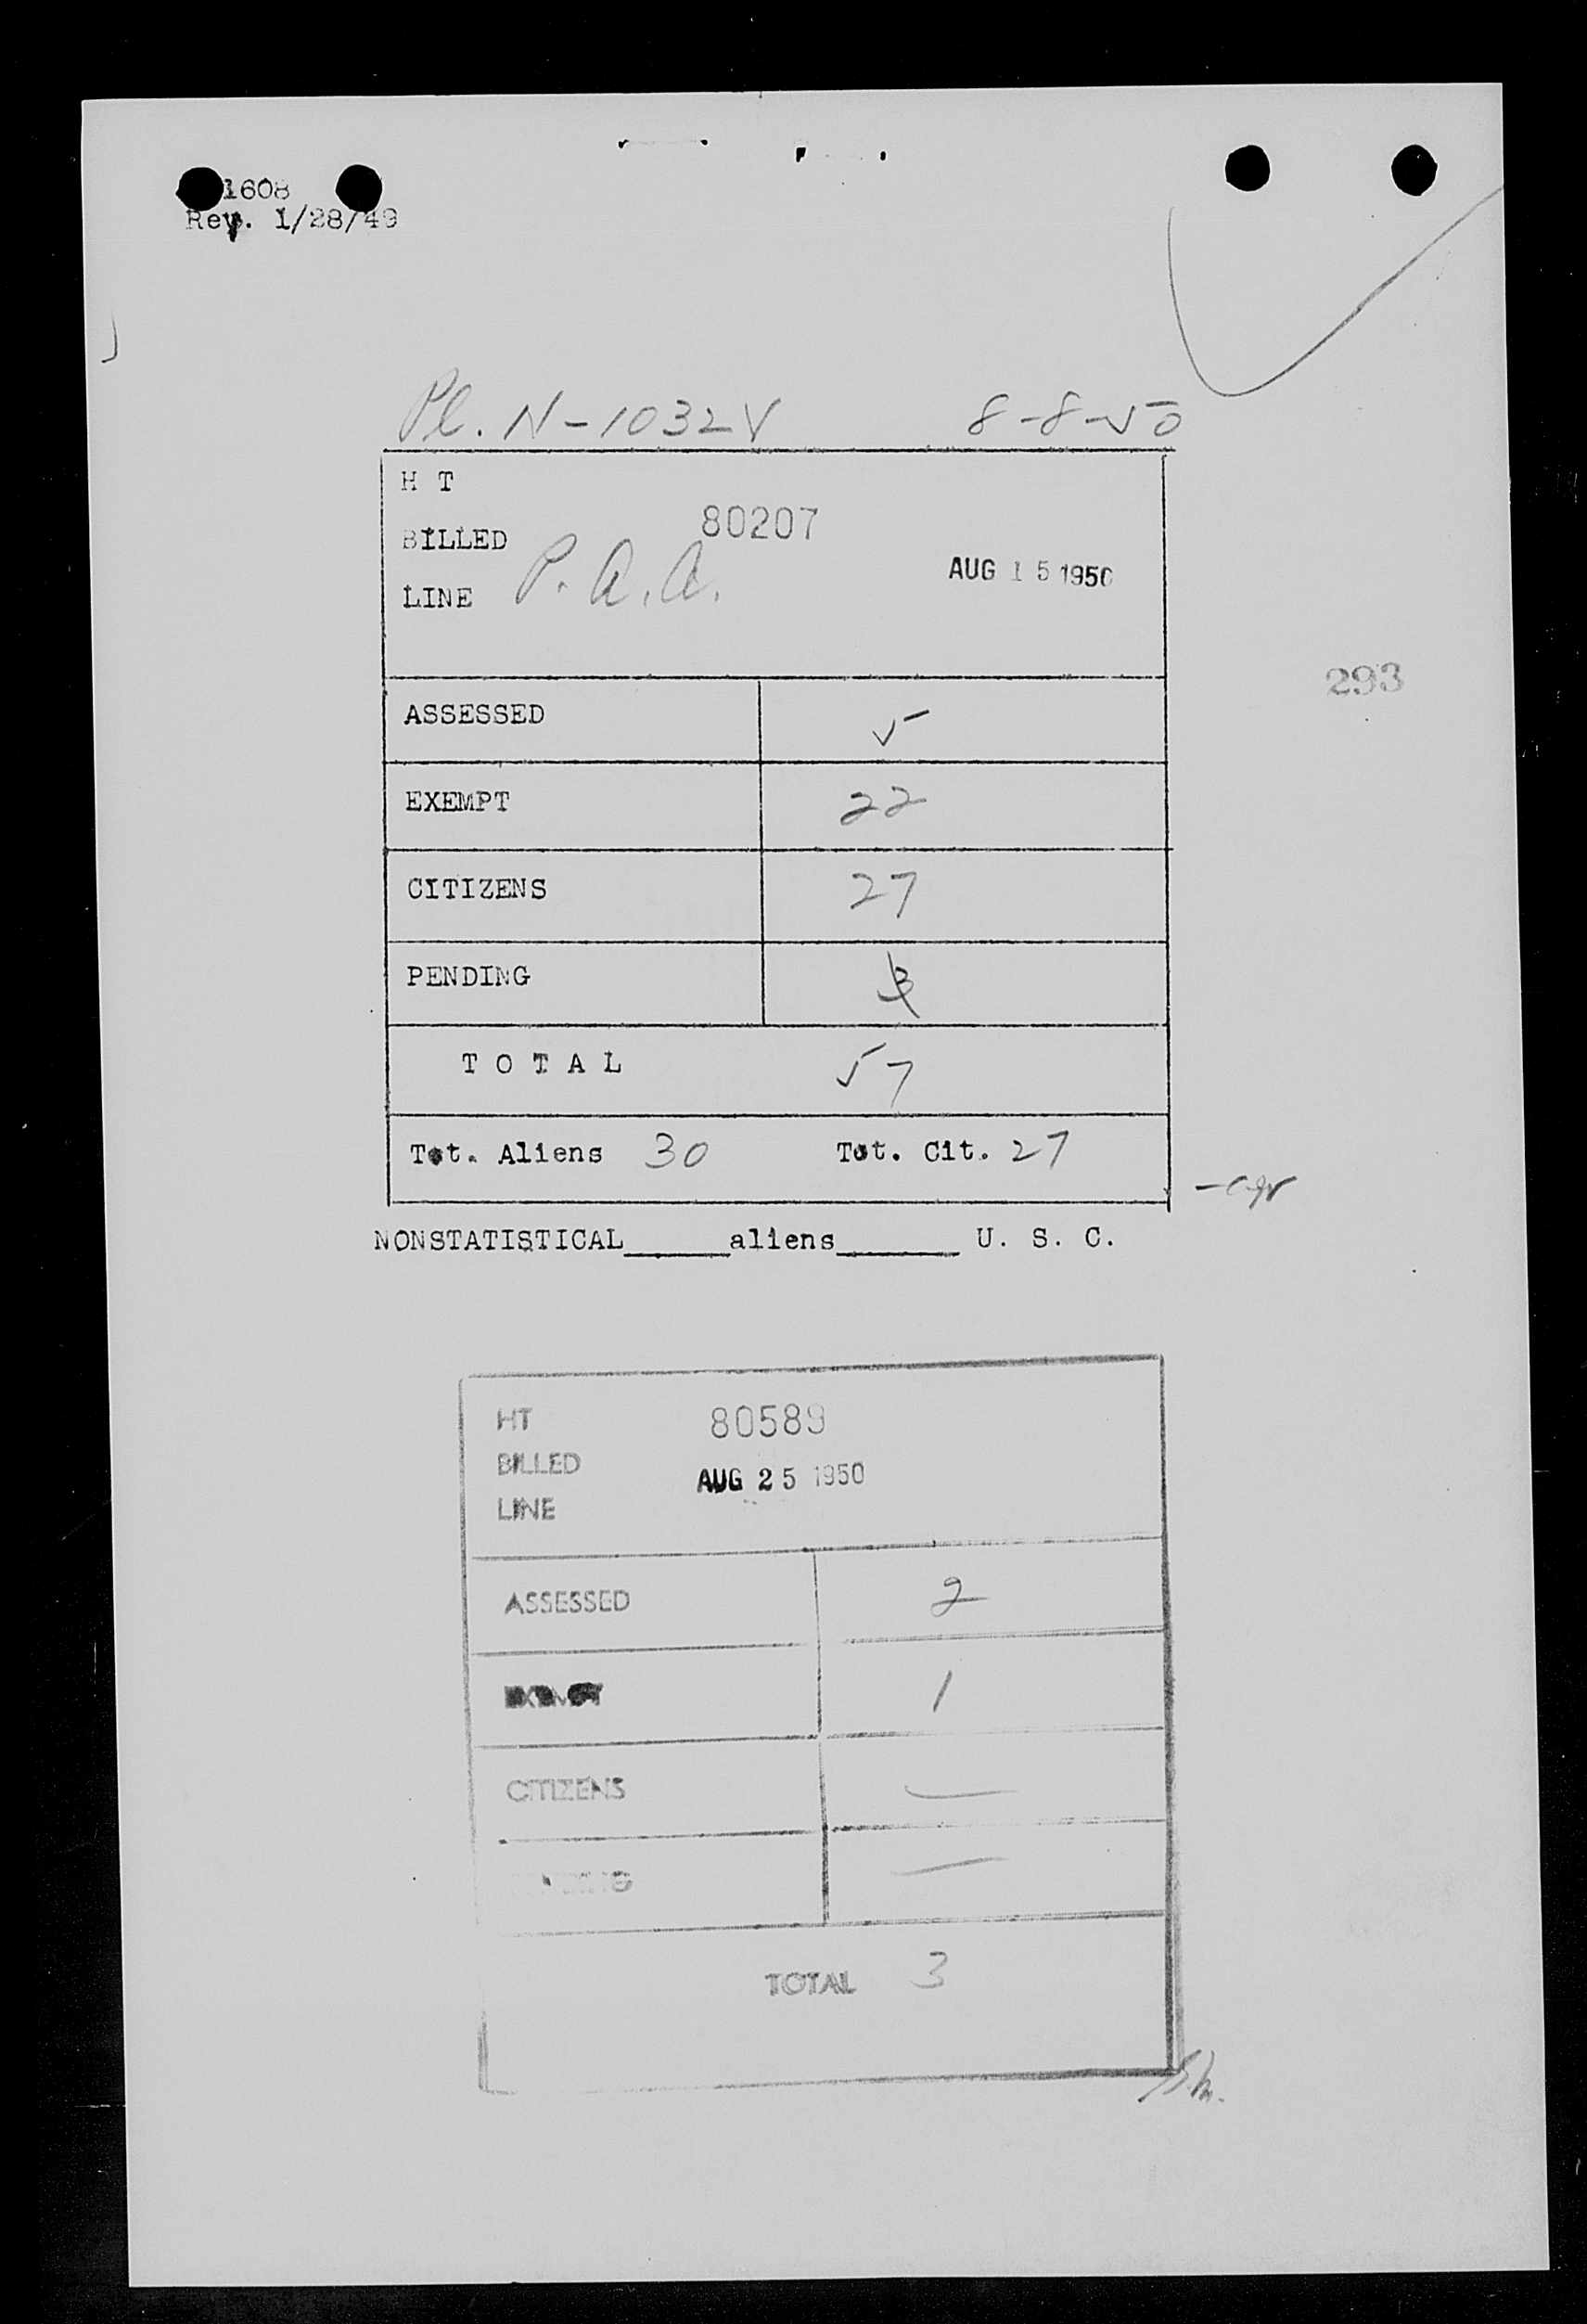 1608
Rev. 1/28/49
Pl. N-1032V 8-8-50
H T
80207
BILLED
AUG 15 1950
LINE P.A.A.
293
ASSESSED 5
EXEMPT 22
CITIZENS 27
PENDING 3
TOTAL 57
Tot. Aliens 30 Tot. Cit. 27
NONSTATISTICAL______aliens_______ U. S. C.
HT 80589
BILLED
AUG 25 1950
LINE
ASSESSED 2
EXEMPT 1
CITIZENS —
PENDING —
TOTAL 3